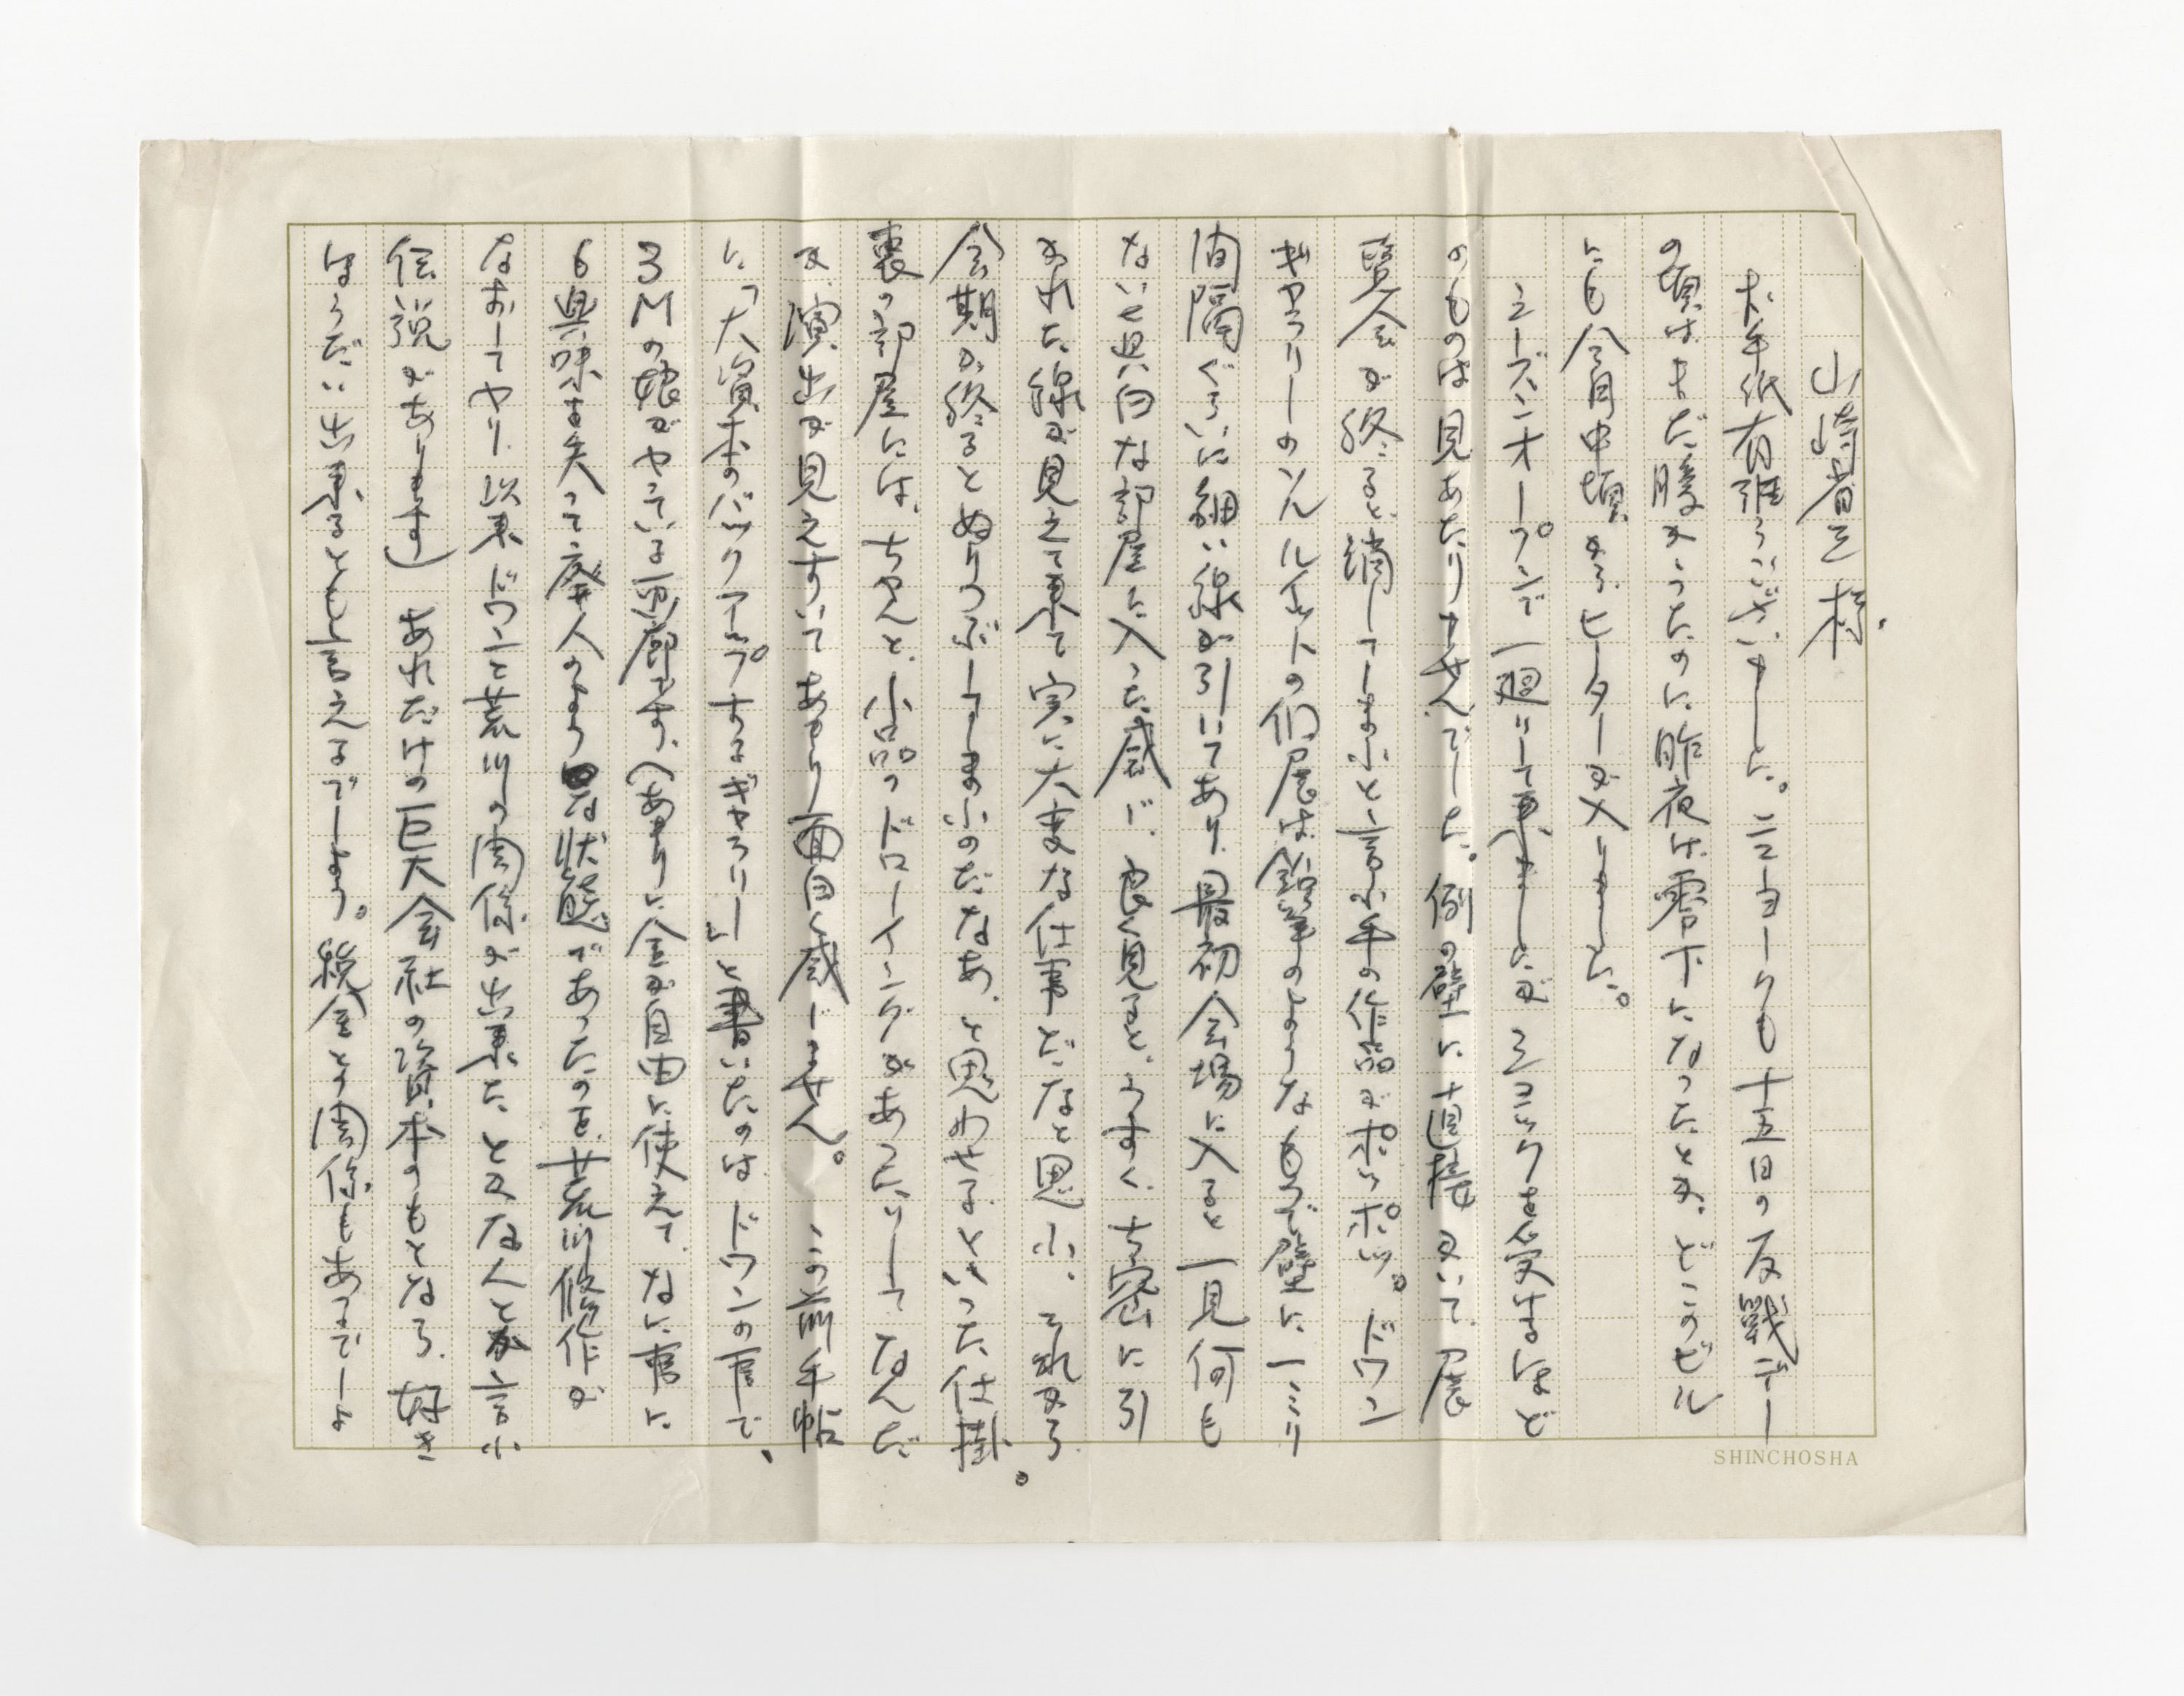 山崎省三様
お手紙有難うございました。ニューヨークも十五日の反戦デー
の頃はまだ暖かったのに昨夜は零下になったとか、どこのビル
にも今月中頃からヒーターが入りました。
シーズンオープンで一廻りして来ましたがショックを受けるほど
のものは見あたりませんでした。例の壁に直接かいて、展
覧会が終ると消してしまふと言ふ手の作品がポツポツ。ドワン
ギャラリーのソルルイットの個展は鉛筆のようなもので壁に一ミリ
間隔ぐらいに細い線が引いてあり、最初会場に入ると一見何も
ない真白な部屋に入った感じ、良く見ると、うすく、ち密に引
かれた線が見えて来て実に大変な仕事だなと思ふ、それから
会期が終るとぬりつぶしてしまふのだなあ、と思わせるといった仕掛。
裏の部屋には、ちゃんと、小品のドローイングがあったりして、なんだ
か、演出が見えすいてあまり面白く感じません。この前手帖
に「大資本のバックアップするギャラリー」と書いたのはドワンの事で、
3Mの娘がやっている画廊です、(あまりに金が自由に使えて、なに事に
も興味を失って廃人のような状態であったのを、荒川修作が
なおしてやり、以来ドワンと荒川の関係が出来たとかなんとか言ふ
伝説があります)あれだけの巨大会社の資本のもとなら、好き
ほうだい出来るとも言えるでしょう。税金との関係もあるでしょ
SHINCHOSHA